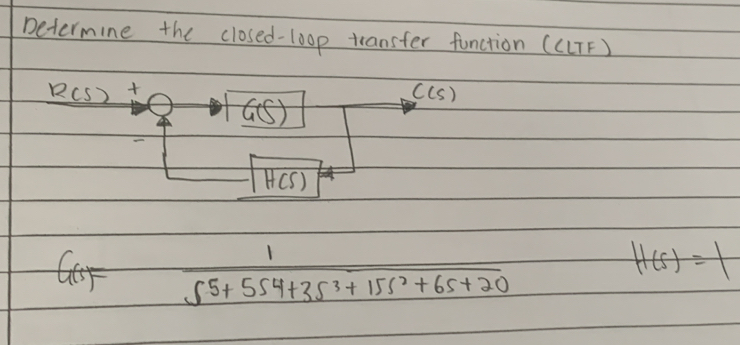 Determine the closed-loop transfer function (CLTF)
R(s) + G(s) C(s)
-
H(s)
G(s)= 1 / s5+ 5s4+3s3+ 15s2+6s+20 H(s) = 1